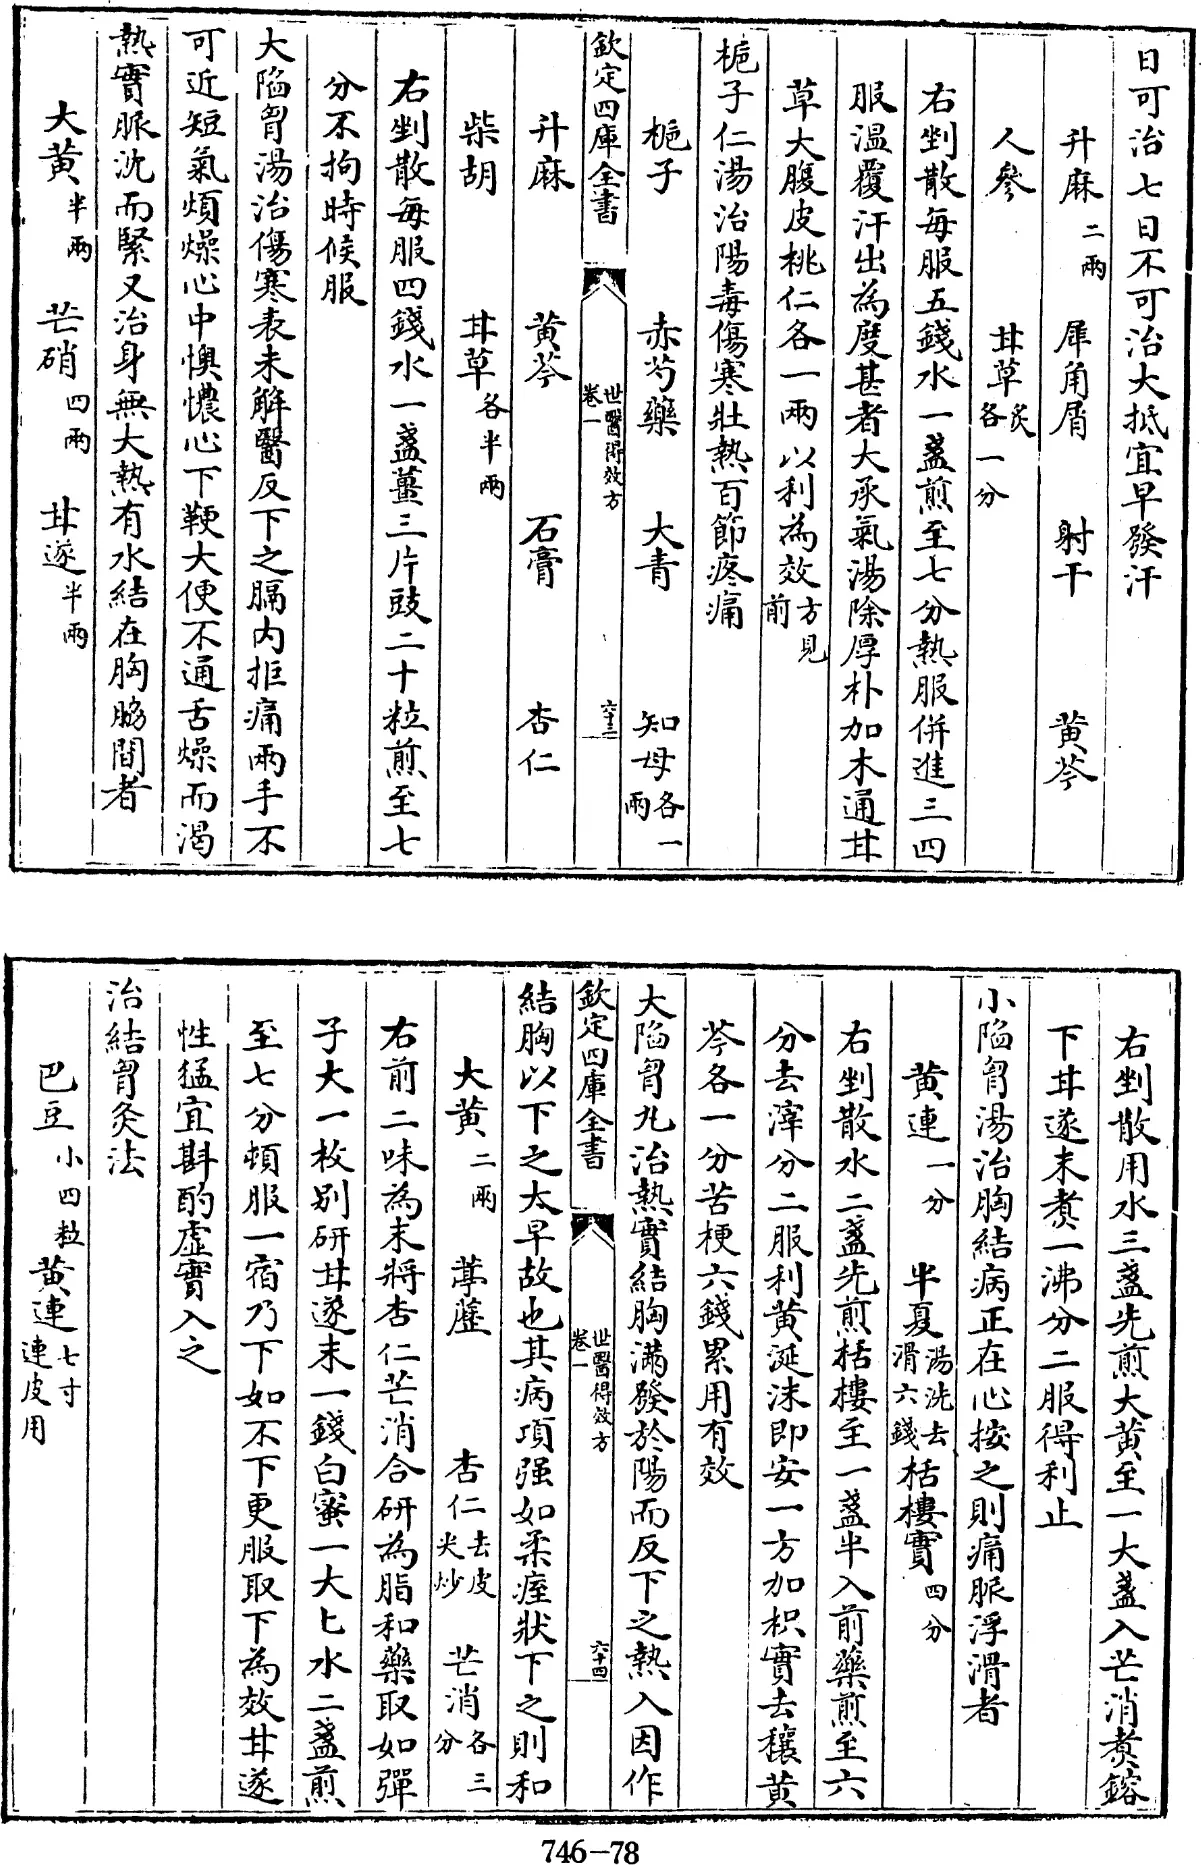 日可治七日不可治大抵宜早發汗
升麻二兩 犀角屑 射干 黄芩
人參 甘草炙各一分
右剉散每服五錢水一盞煎至七分熱服併進三四
服温覆汗出為度甚者大承氣湯除厚朴加木通甘
草大腹皮桃仁各一兩以利為效方見前
梔子仁湯治陽毒傷寒壯熱百節疼痛
梔子 赤芍藥 大青 知母各一兩
欽定四庫全書 世醫得效方 卷一 六十三
升麻 黄芩 石膏 杏仁
柴胡 甘草各半兩
右剉散每服四錢水一盞薑三片豉二十粒煎至七
分不拘時候服
大陷胷湯治傷寒表未解醫反下之膈内拒痛兩手不
可近短氣煩燥心中懊憹心下鞕大便不通舌燥而渴
熱實脈沈而緊又治身無大熱有水結在胸脇間者
大黄半兩 芒硝四兩 甘遂半兩
右剉散用水三盞先煎大黄至一大盞入芒消煮鎔
下甘遂末煮一沸分二服得利止
小陷胷湯治胸結病正在心按之則痛脈浮滑者
黄連一分 半夏湯洗去滑六錢 栝樓實四分
右剉散水二盞先煎栝樓至一盞半入前藥煎至六
分去滓分二服利黄涎沫即安一方加枳實去穰黄
芩各一分苦梗六錢累用有效
大陷胷丸治熱實結胸滿發於陽而反下之熱入因作
欽定四庫全書 世醫得效方 卷一 六十四
結胸以下之太早故也其病項强如柔痓狀下之則和
大黄二兩 葶藶 杏仁去皮尖炒 芒消各三分
右前二味為末將杏仁芒消合研為脂和藥取如彈
子大一枚别研甘遂末一錢白蜜一大匕水二盞煎
至七分頓服一宿乃下如不下更服取下為效甘遂
性猛宜斟酌虚實入之
治結胷灸法
巴豆小四粒 黄連七寸連皮用
746-78